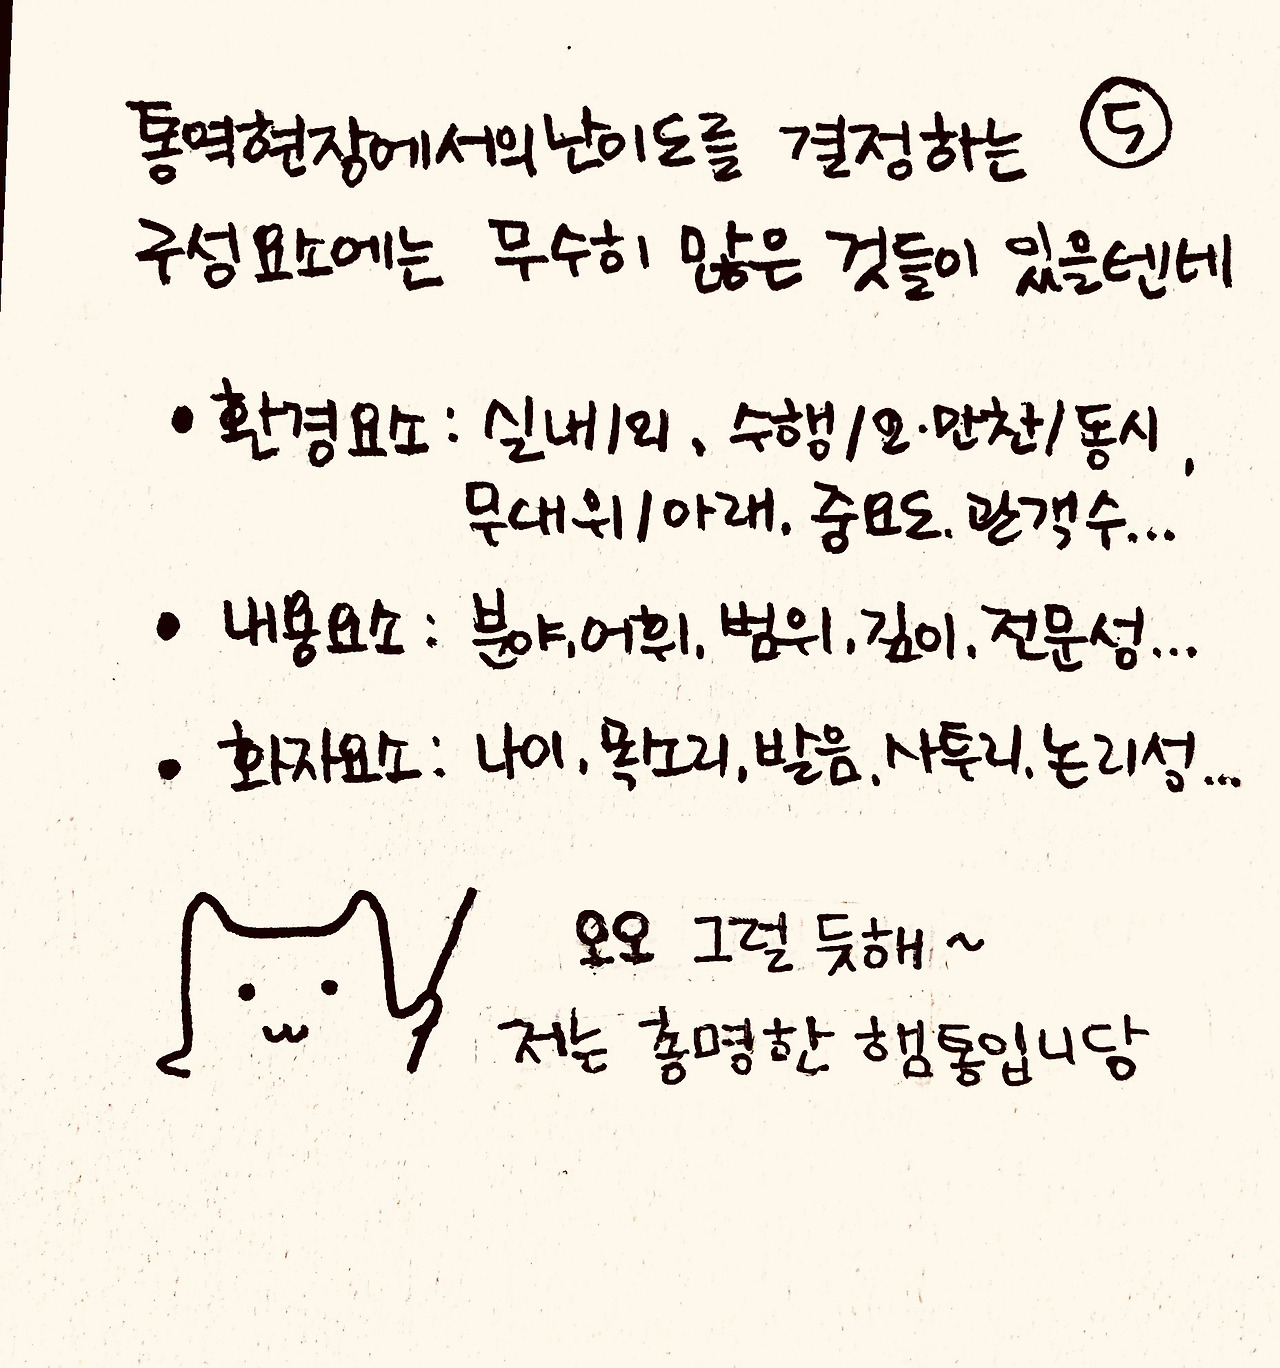 통역현장에서의 난이도를 결정하는 ⑤
구성요소에는 무수히 많은 것들이 있을텐데
• 환경요소: 실내/외, 수행/오·만찬/동시,
무대위/아래, 중요도, 관객수...
• 내용요소: 분야, 어휘, 범위, 깊이, 전문성...
• 화자요소: 나이, 목소리, 발음, 사투리, 논리성...
오오 그럴 듯해~
저는 총명한 햄통입니당